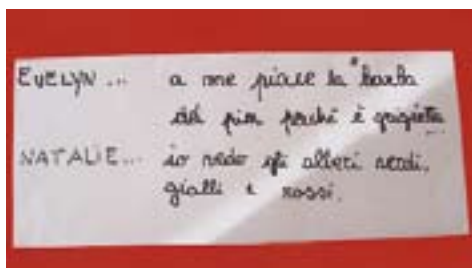 EVELYN... a me piace la "barba
del pino perché è
NATALIE... io vedo gli alberi verdi,
gialli e rossi.